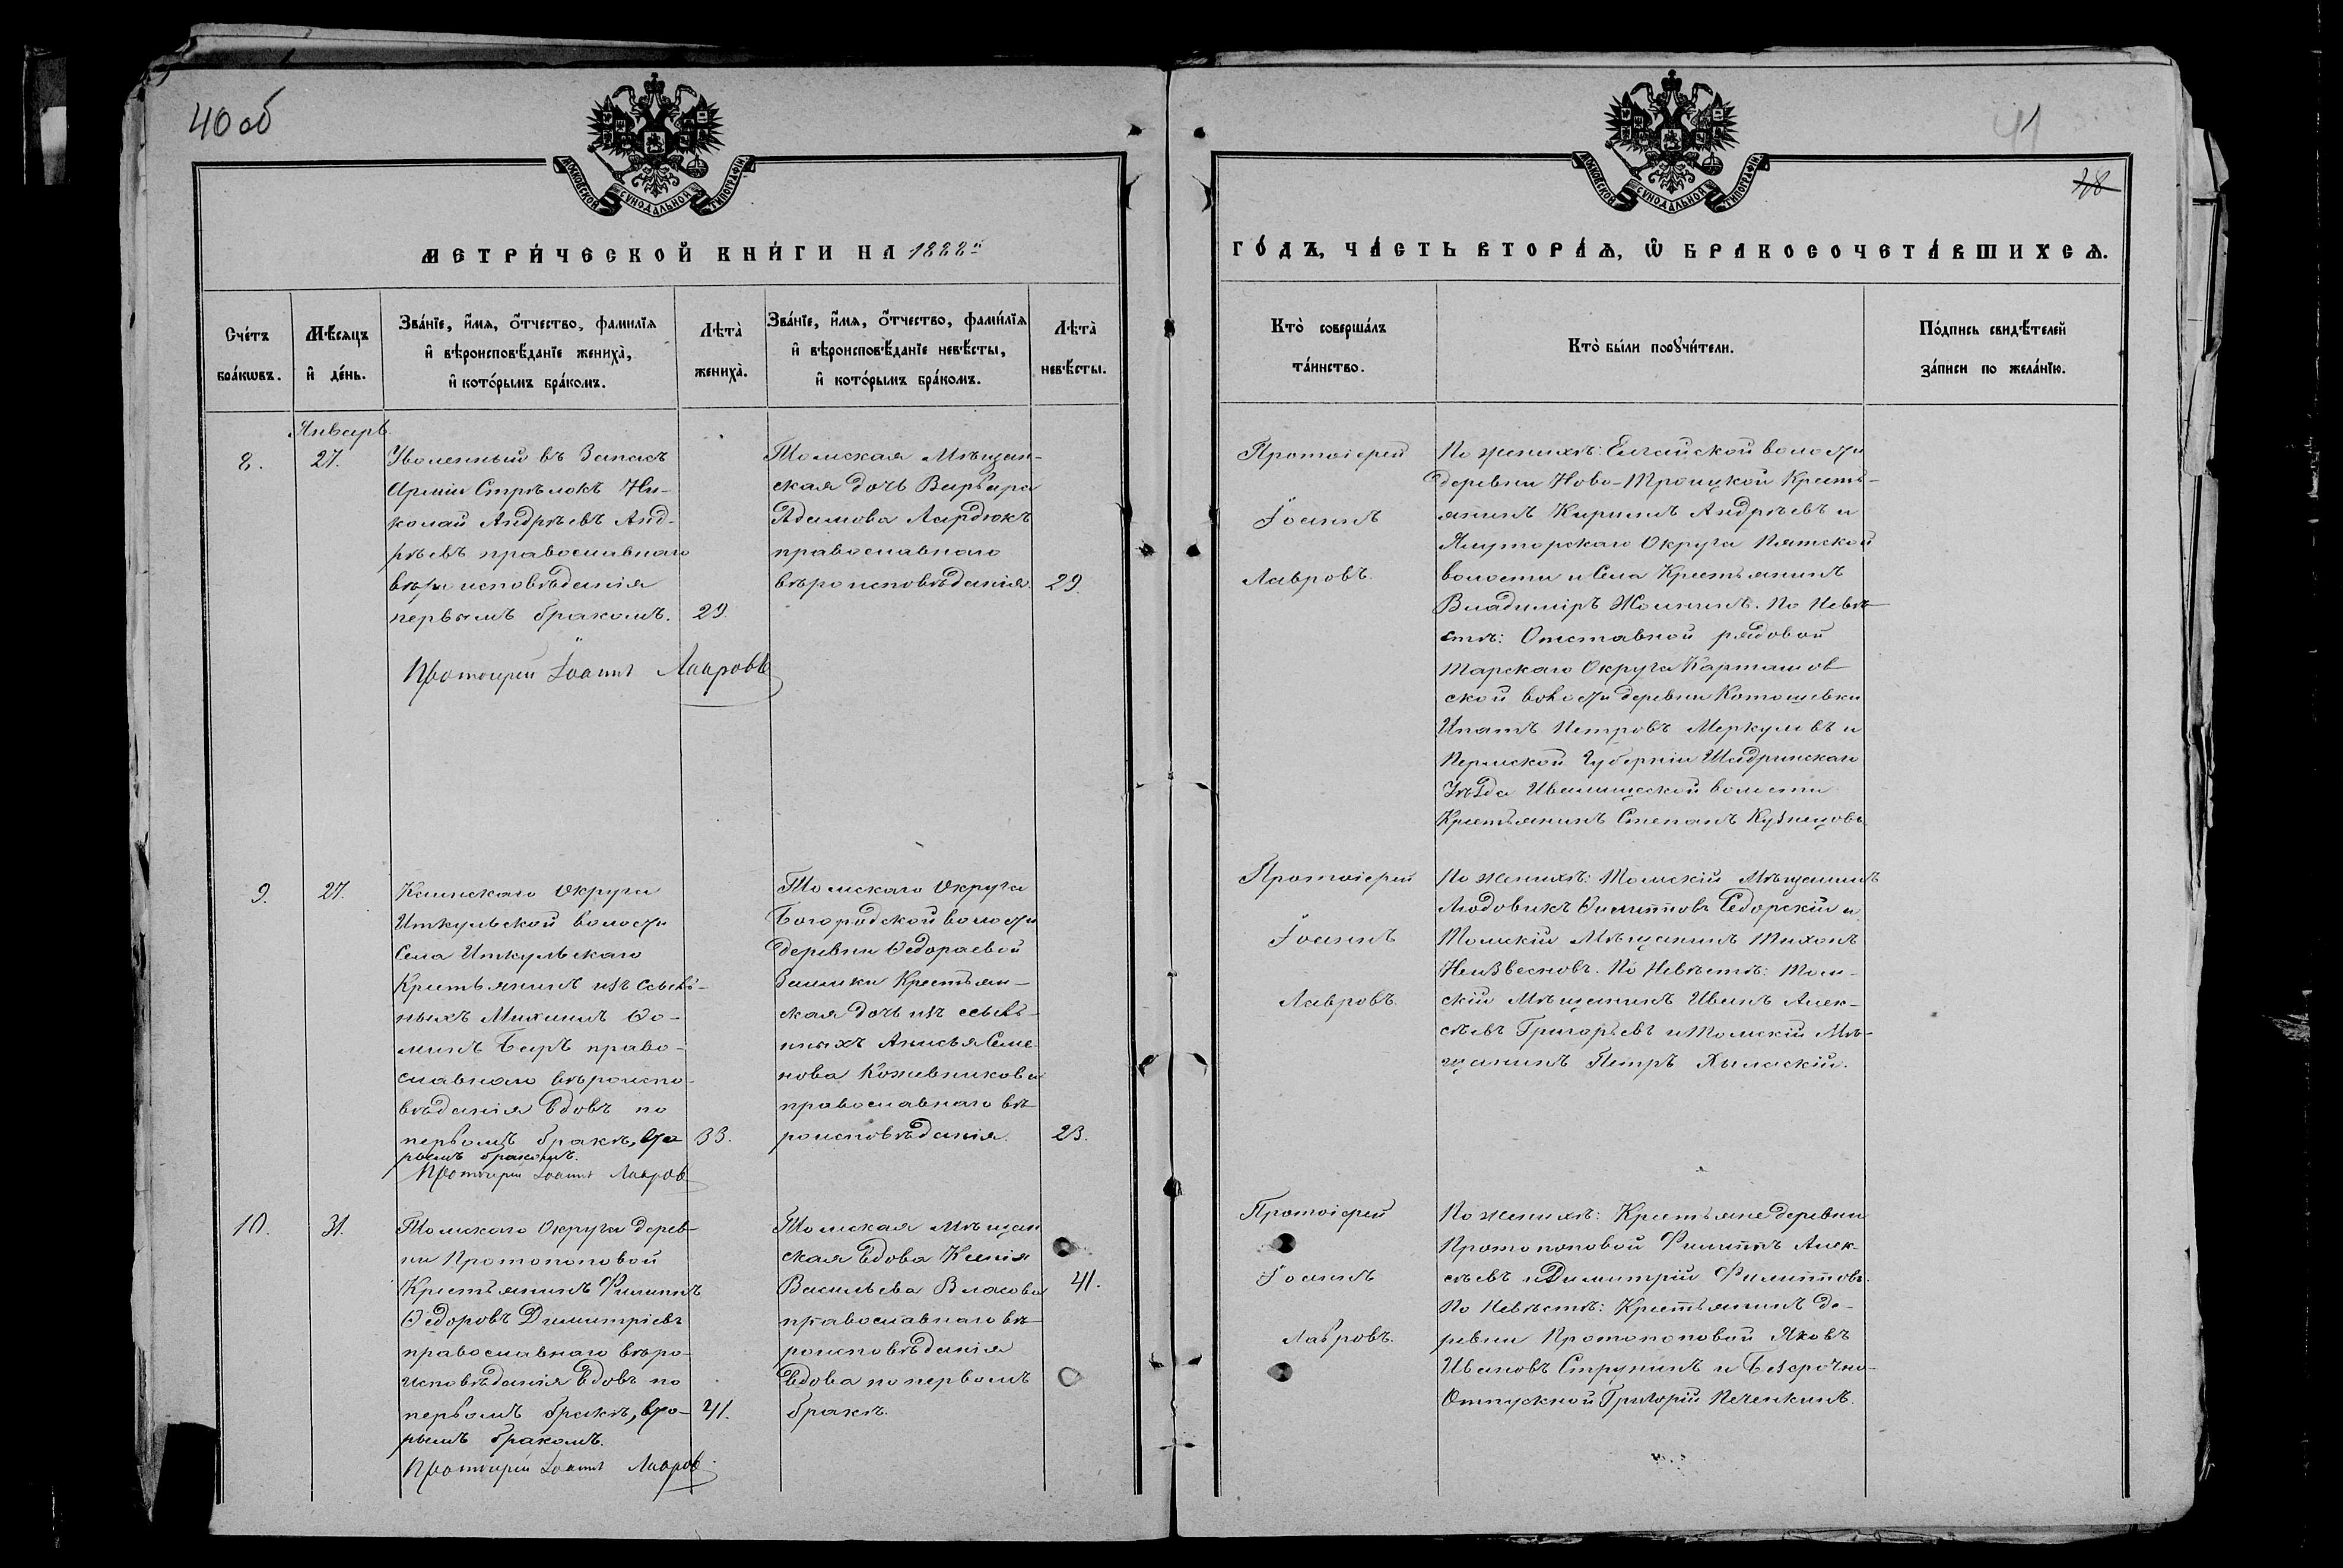 40 об
МОСКОВСКОЙ СѴНОДАЛЬНОЙ ТИПОГРАФІИ
МЕТРИ́ЧЕСКОЙ КНИ́ГИ НА 1888й
Сче́тъ бра́кωвъ.
Мѣ́сяцъ и҆ де́нь.
Зва́нїе, и҆́мѧ, ѻ҆́тчество, фамилїѧ
и҆ вѣроисповѣ́данїе жениха̀,
и҆ кото́рымъ бра́комъ.
Лѣта̀ жениха̀.
Зва́нїе, и҆́мѧ, ѻ҆́тчество, фами́лїѧ
и҆ вѣроисповѣ́данїе невѣ́сты,
и҆ кото́рымъ бра́комъ.
Лѣта̀ невѣ́сты.
Январь
8.
27.
Уволенный въ Запасъ
Арміи Стрѣлокъ Ни-
колай Андрѣевъ Анд-
рѣевъ православнаго
вѣроисповѣданія
первымъ бракомъ.
29.
Протоіерей Іоаннъ Лавровъ
Томская Мѣщан-
ская дочь Варвара
Адамова Лардюкъ
православнаго
вѣроисповѣданія.
29.
9.
27.
Каинскаго Округа
Иткульской волости
Села Иткульскаго
Крестьянинъ изъ ссыль-
ныхъ Михаилъ Ѳо-
минъ Беръ право-
славнаго вѣроиспо-
вѣданія вдовъ по
первомъ бракѣ, вто
рымъ бракомъ.
33.
Протоіерей Іоаннъ Лавров
Томскаго Округа
Богородской волости
деревни Ѳедораевой
Заимки Крестьян-
ская дочь изъ ссыль-
нныхъ Анисья Семе
нова Кожевникова
православнаго вѣ
роисповѣданія.
23.
10.
31.
Томскаго Округа дерев-
ни Протопоповой
Крестьянинъ Филиппъ
Ѳедоровъ Димитріевъ
православнаго вѣро-
исповѣданія вдовъ по
первомъ бракѣ, вто-
рымъ бракомъ.
41.
Протоіерей Іоаннъ Лавров
Томская Мѣщан
ская вдова Ксенія
Васильева Власова
православнаго вѣ
роисповѣданія
вдова по первомъ
бракѣ.
41.
41
38
МОСКОВСКОЙ СѴНОДАЛЬНОЙ ТИПОГРАФІИ
ГО́ДЪ, ЧА́СТЬ ВТОРА́Ѧ, Ѽ БРАКОСОЧЕТА́ВШИХСѦ.
Кто̀ соверша́лъ та́инство.
Кто̀ бы́ли порꙋчи́тели.
По́дпись свидѣ́телей за́писи по жела́нїю.
Протоіерей
Іоаннъ
Лавровъ.
По женихѣ: Елгайской волости
деревни Ново-Троицкой Кресть-
янинъ Кирилъ Андрѣевъ и
Ялуторскаго Округа Пятской
волости и Села Крестьянинъ
Владиміръ Жолнинъ. По Невѣ-
стѣ: Отставной рядовой
Тарскаго Округа Карташов
ской волости деревни Котощевки
Ипатъ Петровъ Меркуловъ и
Пермской Губерніи Шадринскаго
Уѣзда Иванищеской волости
Крестьянинъ Степанъ Кузнецовъ
Протоіерей
Іоаннъ
Лавровъ.
По женихѣ: Томскій Мѣщанинъ
Людовикъ Филипповъ Седорскій и
Томскій Мѣщанинъ Тихонъ
Неизвесновъ. По Невѣстѣ: Том-
скій Мѣщанинъ Иванъ Алек-
сѣевъ Григорьевъ и Томскій Мѣ-
щанинъ Петръ Хыласкій.
Протоіерей
Іоаннъ
Лавровъ.
По женихѣ: Крестьяне деревни
Протопоповой Филиппъ Алек-
сѣевъ и Димитрій Филипповъ.
По Невѣстѣ: Крестьянинъ де-
ревни Протопоповой Яковъ
Ивановъ Струнинъ и Безсрочно-
Отпускной Григорій Печенкинъ.